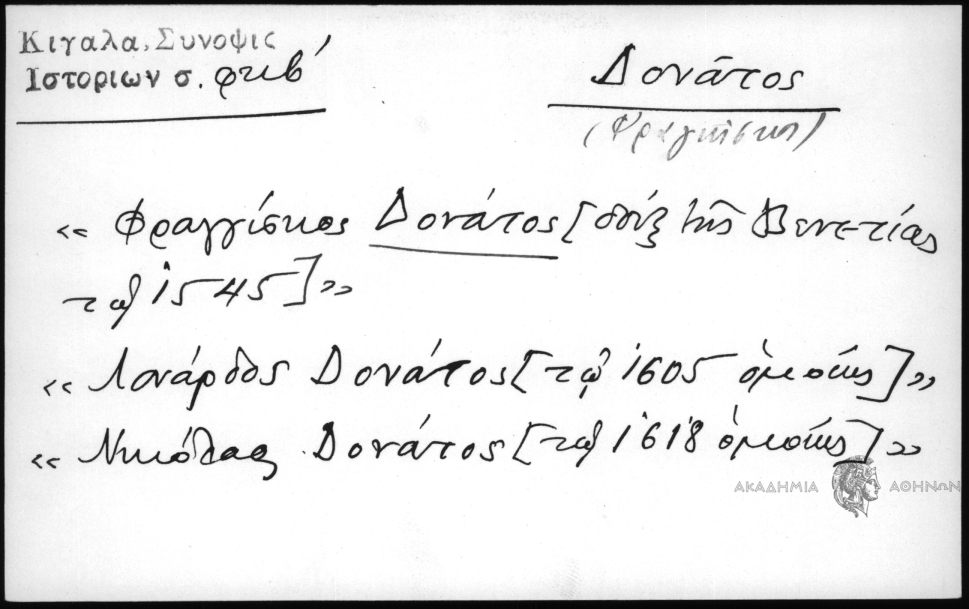 Κιγαλα, Συνοψις
Ιστοριων σ. φκβ΄
Δονᾶτος
(Φραγκίσκος)
« Φραγγίσκος Δονάτος [δόιξ τῆς Βενετίας
τῷ 1545]»
« Λονάρδος Δονάτος [τῷ 1605 ὁμοίως]»
« Νικόλαος Δονάτος [τῷ 1618 ὁμοίως]»
ΑΚΑΔΗΜΙΑ ΑΘΗΝΩΝ